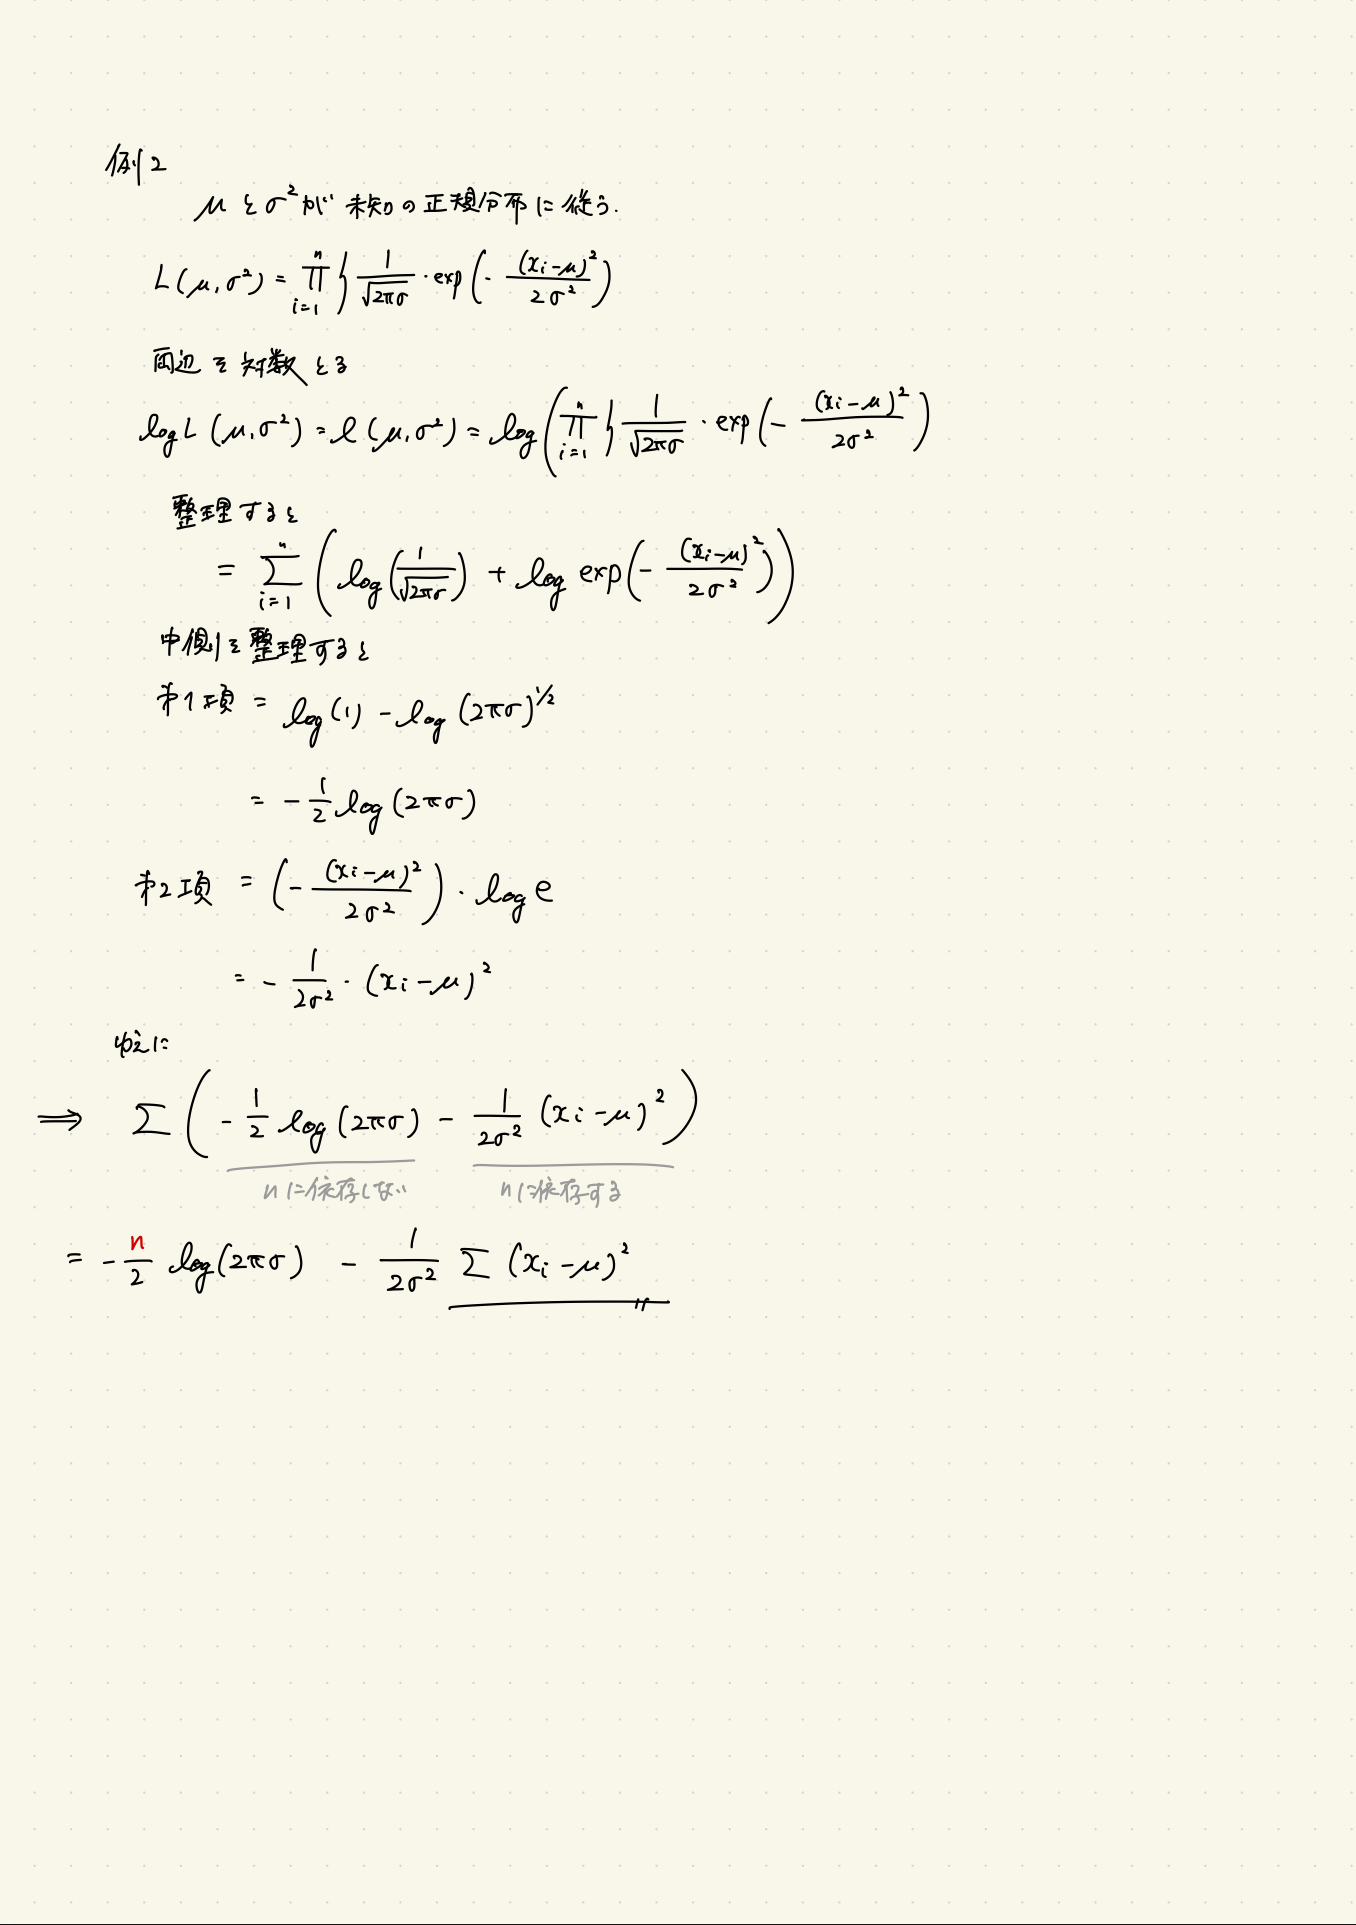 例2
μとσ²が未知の正規分布に従う.
L(μ,σ²) = ∏_{i=1}^{n} { 1/√(2πσ) · exp(- (xi-μ)²/2σ²)
両辺を対数とる
log L(μ,σ²) = l(μ,σ²) = log(∏_{i=1}^{n} { 1/√(2πσ) · exp(- (xi-μ)²/2σ²)
整理すると
= Σ_{i=1}^{n} (log(1/√(2πσ)) + log exp(- (xi-μ)²/2σ²))
中側を整理すると
第1項 = log(1) - log(2πσ)^{1/2}
= - 1/2 log(2πσ)
第2項 = (- (xi-μ)²/2σ²) · log e
= - 1/2σ² · (xi-μ)²
ゆえに
⟹ Σ(- 1/2 log(2πσ) - 1/2σ² (xi-μ)²)
nに依存しない nに依存する
= - n/2 log(2πσ) - 1/2σ² Σ(xi-μ)²